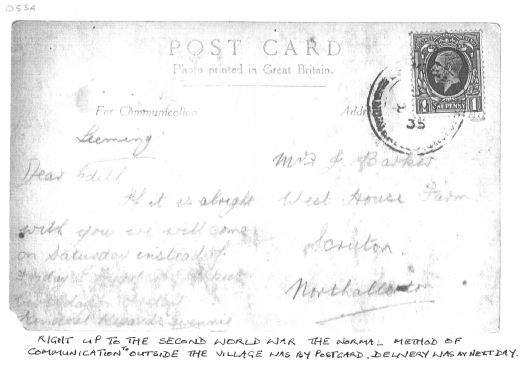 053A
POST CARD
Photo printed in Great Britain.
For Communication
Leeming
Dear Edith
If it is alright
with you we will come
on Saturday instead of
Kindest Regards
Mrs J Barker
West House Farm
Scruton
Northallerton
35
ONE PENNY
RIGHT UP TO THE SECOND WORLD WAR THE NORMAL METHOD OF
COMMUNICATION TO OUTSIDE THE VILLAGE WAS BY POSTCARD. DELIVERY WAS BY NEXT DAY.